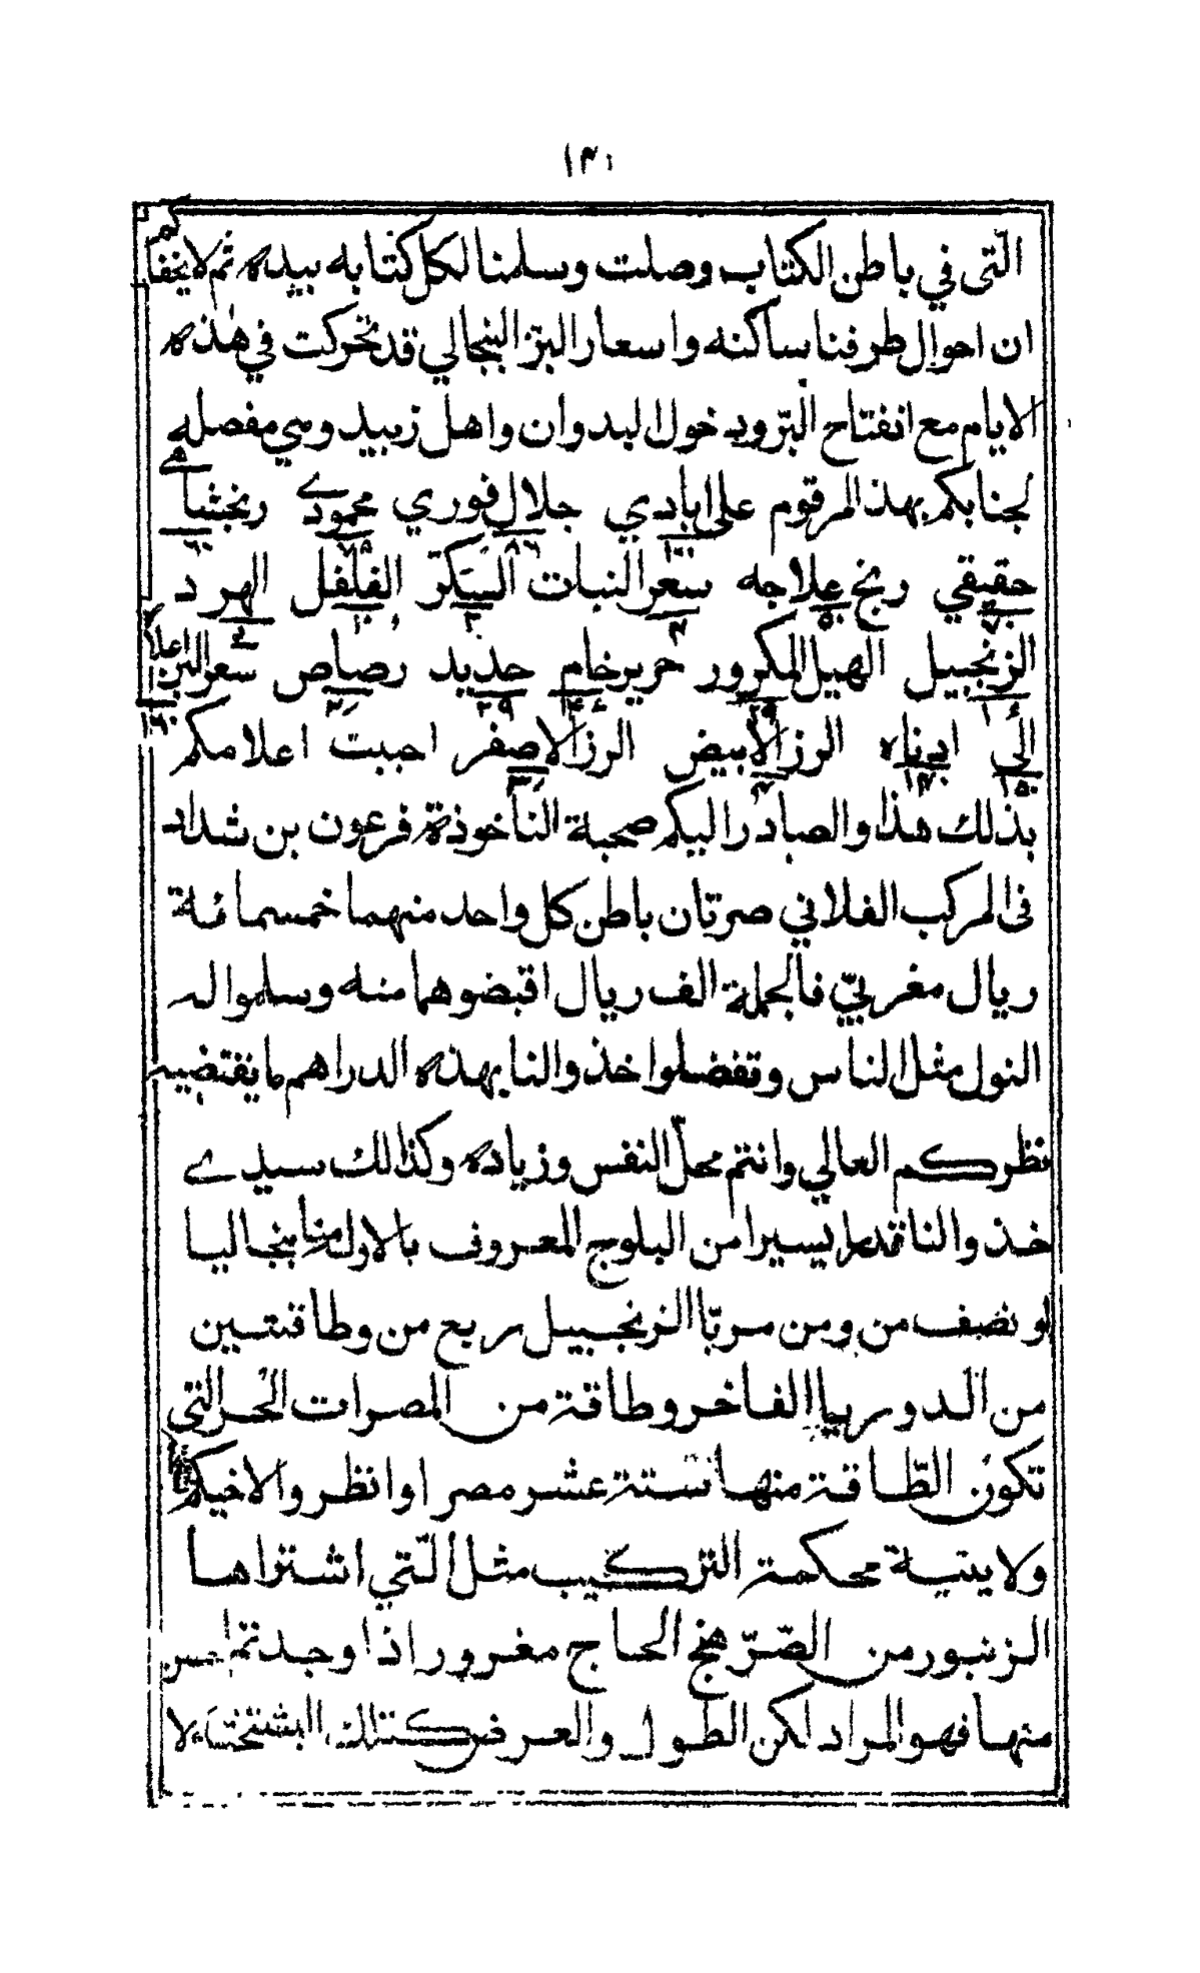 ١٣٠
التى في باطن الكتاب وصلت وسلمنا لكل كتابه بيده ثم لا يخفاكم
ان احوال طرفنا ساكنه واسعار البز البنجالي قد تحركت في هذه
الايام مع انفتاح البرّ ودخول البدوان واهل زبيد وهي مفصله
لجنابكم بهذ المرقوم على ابادي جلال فوري محمودے ربخشاهے
١٦٠ ٨٦ ٧٥ ٦٠
حقيقي ربخ علاجه سعر النبات السكر الفلفل الهرد
الزنجبيل الهيل المكرور حرير خام حديد رصاص سعر البن اعلا
١٦٠
الى ادناه الرز الابيض الرز الاصفر احببت اعلامكم
١٥٠ ١٣٠
بذلك هذا والصادر اليكم صحبة الناخوذة فرعون بن شداد
فى المركب الفلاني صرتان باطن كل واحد منهما خمسمائة
ريال مغربيّ فالجملة الف ريال اقبضوهما منه وسلموا له
النول مثل الناس وتفضلوا خذوا لنا بهذه الدراهم ما يقتضيه
نظركم العالي وانتم محلّ النفس وزياده وكذالك سيدے
خذوا لنا قدرا يسيرا من البلوج المعروف بالاول منا بنجاليا
او نصف من ومن مربّا الزنجبيل ربع من وطاقتين
من الدوريا الفاخر وطاقة من المصرات الحُمر التي
تكون الطّاقة منها ستة عشر مصرا وانظروا لاخيكم
ولايتية محكمة التركيب مثل الّتي اشتراها
الزنبور من الصّرّهنج الحاج مغرور اذا وجدتم احسن
منها فهو المراد لكن الطول والعرض كتلك البشتختاه لا